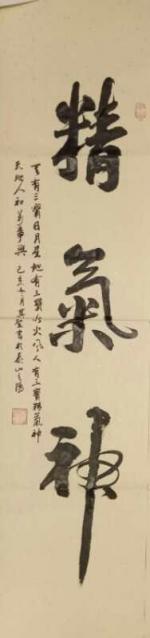 精氣神
天有三寶日月星地有三寶水火風人有三寶精氣神
天地人和萬事興